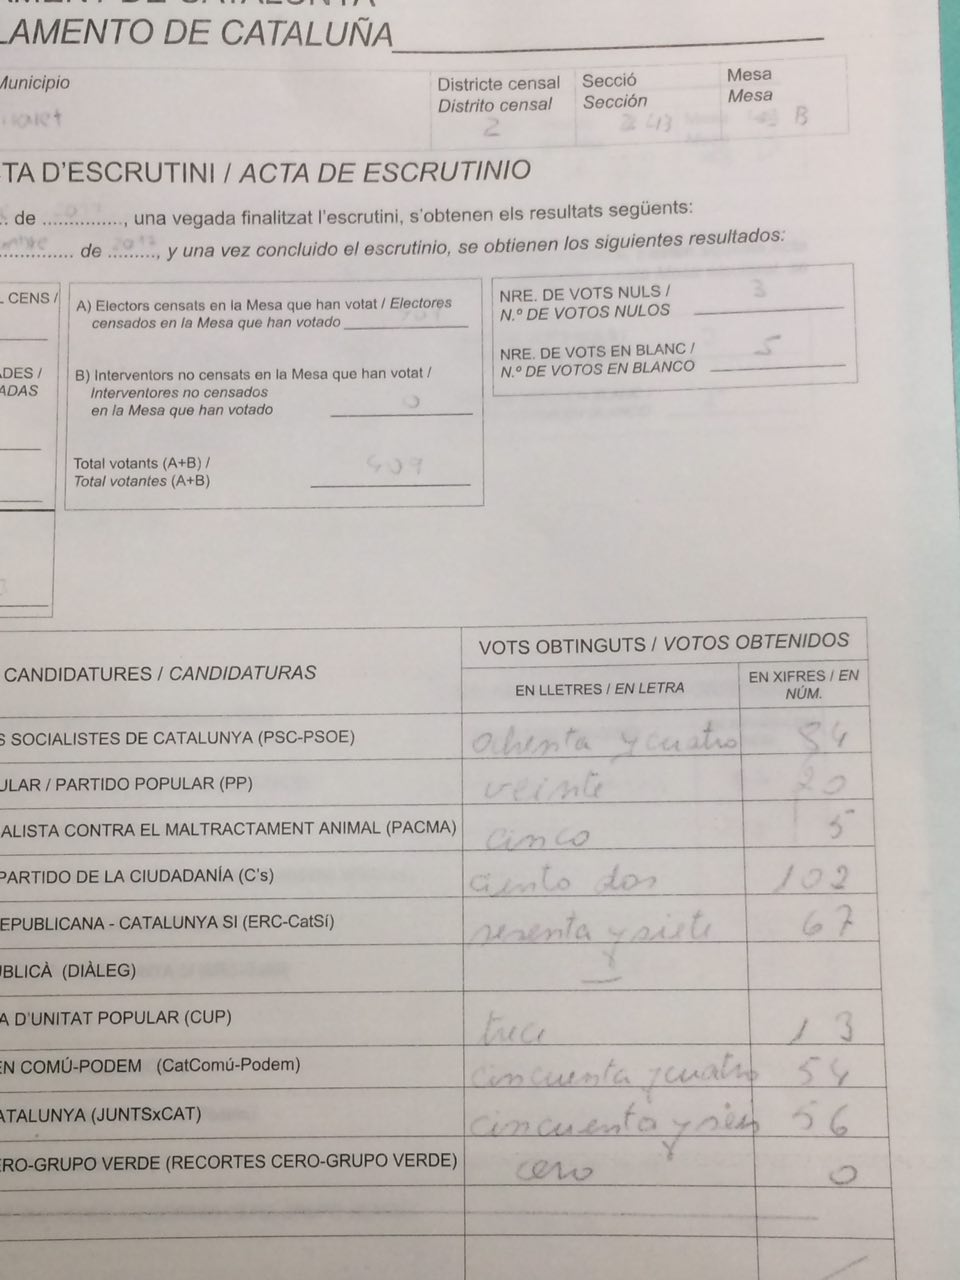 LAMENTO DE CATALUÑA
Municipio
Districte censal
Distrito censal
2
Secció
Sección
Mesa
Mesa
B
TA D'ESCRUTINI / ACTA DE ESCRUTINIO
.. de .............., una vegada finalitzat l'escrutini, s'obtenen els resultats següents:
de 2017, y una vez concluido el escrutinio, se obtienen los siguientes resultados:
L CENS /
ADES /
ADAS
A) Electors censats en la Mesa que han votat / Electores
censados en la Mesa que han votado
B) Interventors no censats en la Mesa que han votat /
Interventores no censados
en la Mesa que han votado 0
Total votants (A+B) /
Total votantes (A+B) 409
NRE. DE VOTS NULS /
N.º DE VOTOS NULOS 3
NRE. DE VOTS EN BLANC /
N.º DE VOTOS EN BLANCO 5
CANDIDATURES / CANDIDATURAS
VOTS OBTINGUTS / VOTOS OBTENIDOS
EN LLETRES / EN LETRA
EN XIFRES / EN
NÚM.
S SOCIALISTES DE CATALUNYA (PSC-PSOE) ochenta y cuatro 84
ULAR / PARTIDO POPULAR (PP) veinte 20
ALISTA CONTRA EL MALTRACTAMENT ANIMAL (PACMA) cinco 5
PARTIDO DE LA CIUDADANÍA (C's) ciento dos 102
EPUBLICANA - CATALUNYA SI (ERC-CatSí) sesenta y siete 67
UBLICÀ (DIÀLEG)
A D'UNITAT POPULAR (CUP) trece 13
EN COMÚ-PODEM (CatComú-Podem) cincuenta y cuatro 54
ATALUNYA (JUNTSxCAT) cincuenta y seis 56
ERO-GRUPO VERDE (RECORTES CERO-GRUPO VERDE) cero 0